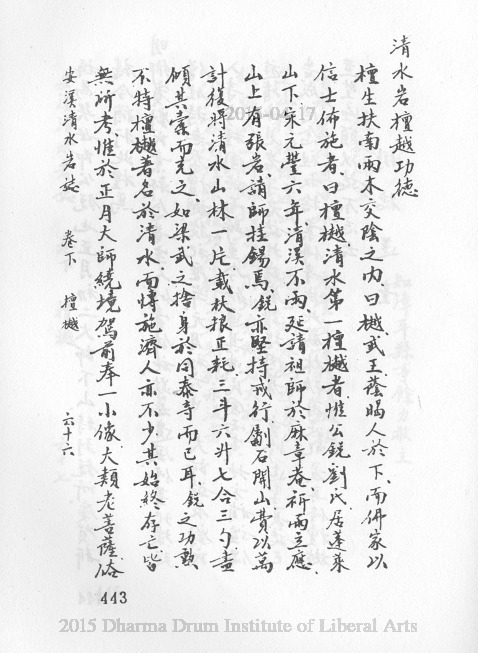 清水岩檀越功德
檀生扶南兩木交陰之內、曰樾、武王蔭暍人於下、而佛家以
信士佈施者、曰檀樾、清水第一檀樾者惟公銳劉氏、居蓬萊
山下、宋元豐六年、清溪不雨、延請祖師於麻章菴、祈雨立應、
山上有張岩、請師挂錫焉、銳亦堅持戒行、劚石開山、費以萬
計、後將清水山林一片、載秋振正耗三斗六升七合三勺、盡
傾其橐而充之、如梁武之捨身於同泰寺而已耳、銳之功勲
不特檀樾著名於清水、而博施濟人亦不少、其始終存亡皆
無所考、惟於正月大師繞境、駕前奉一小像、大類老菩薩、俗
安溪清水岩誌　卷下　檀樾　六十六
443
2015-04-17
2015 Dharma Drum Institute of Liberal Arts